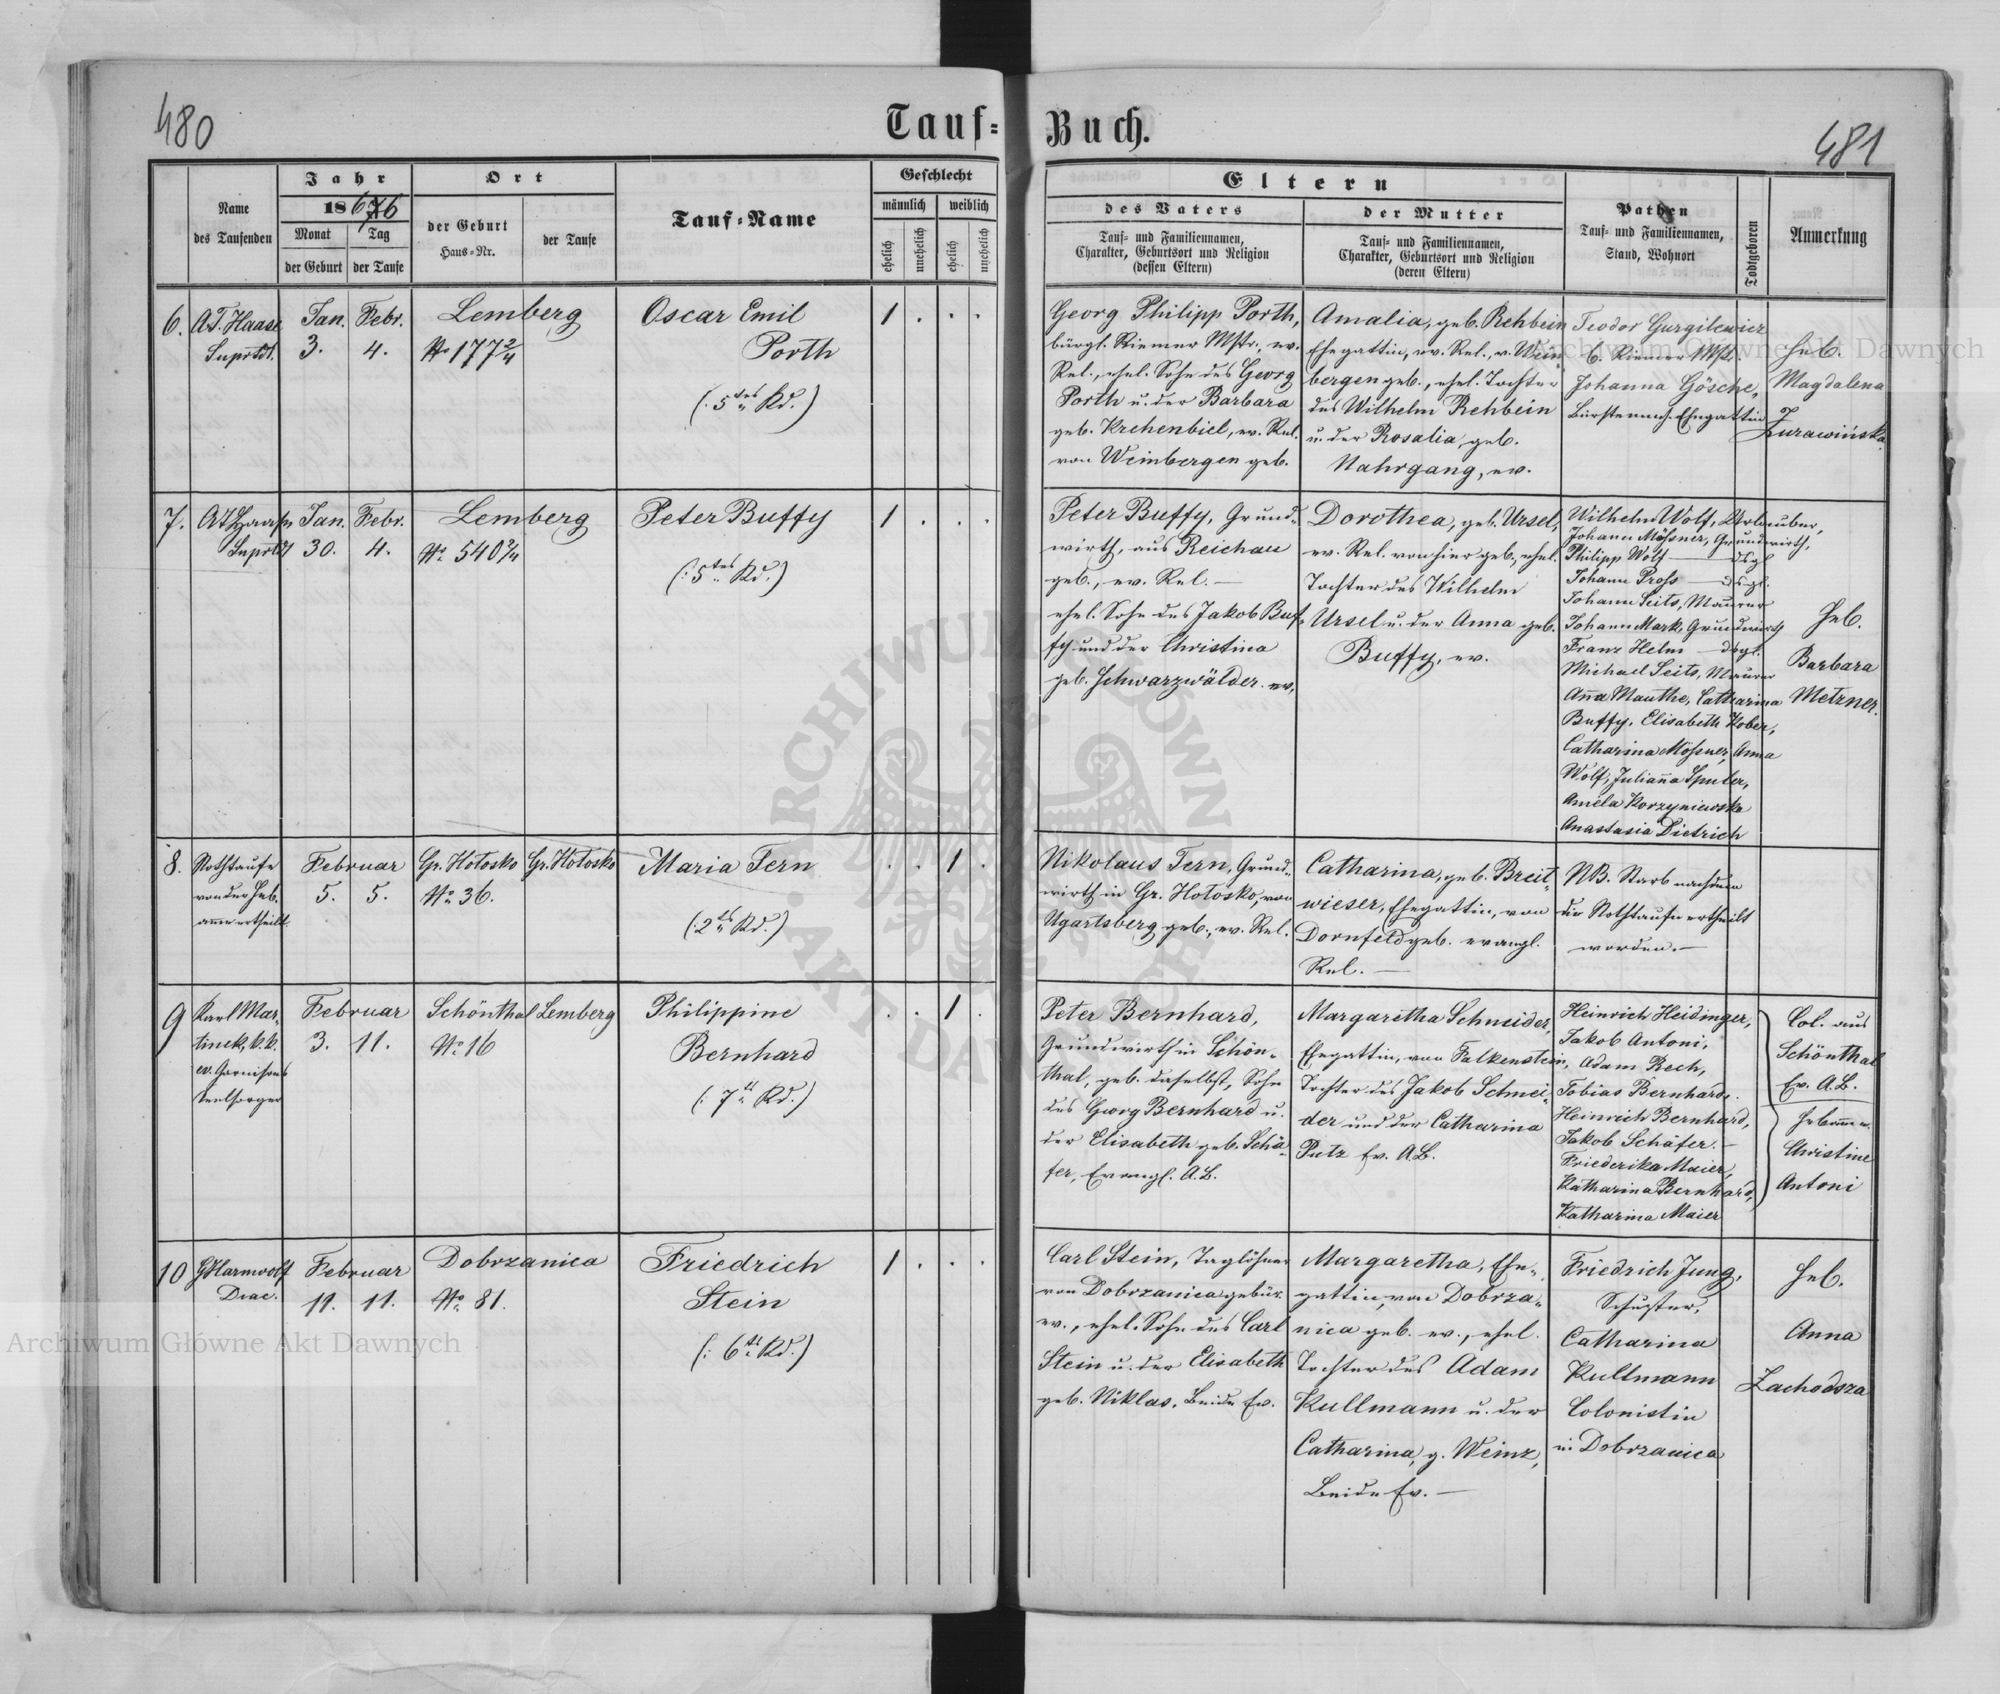 480
Tauf=
Buch.
481
Jahr
Ort
Geschlecht
Name
des Taufenden
1876
Monat
Tag
der Geburt
der Taufe
der Geburt
Haus=Nr.
der Taufe
Tauf=Name
männlich
weiblich
ehelich
unehelich
ehelich
unehelich
Eltern
des Vaters
Tauf= und Familiennamen,
Charakter, Geburtsort und Religion
(dessen Eltern)
der Mutter
Tauf= und Familiennamen,
Charakter, Geburtsort und Religion
(deren Eltern)
Pathen
Tauf= und Familiennamen,
Stand, Wohnort
Todtgeboren
Anmerkung
6.
A.T. Haase
Suprtdt.
Jan.
3.
Febr.
4.
Lemberg
No 177 2/4
Oscar Emil
Porth
(: 5tes Kd.)
1 . . .
Georg Philipp Porth,
bürgl. Riemer Mstr., ev.
Rel., ehel. Sohn des Georg
Porth u. der Barbara
geb. Krehenbiel, ev. Rel.
von Weinbergen geb.
Amalia, geb. Rehbein
Ehegattin, ev. Rel., v. Wein
bergen geb., ehel. Tochter
des Wilhelm Rehbein
u. der Rosalia, geb.
Nahrgang, ev.
Teodor Gurgilewicz
b. Riemer Mst.
Johanna Gösche,
Bürstenmch. Ehegattin
Heb.
Magdalena
Zurawińska
7.
A T Haase
Suprtdt
Jan.
30.
Febr.
4.
Lemberg
No 540 2/4
Peter Buffy
(: 5tes Kd.)
1 . . .
Peter Buffy, Grund=
wirth, aus Reichau
geb., ev. Rel. —
ehel. Sohn des Jakob Buf=
fy und der Christina
geb. Schwarzwälder. ev.
Dorothea, geb. Ursel,
ev. Rel. von hier geb., ehel.
Tochter des Wilhelm
Ursel u. der Anna geb.
Buffy, ev.
Wilhelm Wolf, Urlauber,
Johann Mößner, Grundwirth,
Philipp Wolf — dsgl
Johann Proß — dsgl.
Johann Seits, Maurer
Johann Mark, Grundwirth
Franz Helm — dsgl.
Michael Seits, Maurer
Anna Mauthe, Catharina
Buffy, Elisabeth Kober,
Catharina Mößner, Anna
Wolf, Julianna Spuler,
Amela Korzyniewska
Anastasia Dietrich
Heb.
Barbara
Metzner.
8.
Nothtaufe
von der Heb.
amme ertheilt
Februar
5. 5.
Gr. Hotosko
No 36.
Gr. Hotosko
Maria Fern
(: 2tes Kd.)
. . 1 .
Nikolaus Fern, Grund=
wirth in Gr. Hotosko, von
Ugartsberg geb., ev. Rel.
Catharina, geb. Breit=
wieser, Ehegattin, von
Dornfeld geb. evangl.
Rel. —
NB. Starb nachdem
die Nothtaufe ertheilt
worden. —
9
Karl Mar=
tinek, k.k.
ev. Garnisons
seelsorger
Februar
3. 11.
Schönthal
No 16
Lemberg
Philippine
Bernhard
(: 7tes Kd.)
. . 1 .
Peter Bernhard,
Grundwirth in Schön=
thal, geb. daselbst, Sohn
des Georg Bernhard u.
der Elisabeth geb. Schä=
fer, Evangl. A.B.
Margaretha Schneider,
Ehegattin, von Falkenstein,
Tochter des Jakob Schnei=
der und der Catharina
Putz Ev. A.B.
Heinrich Heidinger,
Jakob Antoni,
Adam Rech,
Tobias Bernhard,
Heinrich Bernhard,
Jakob Schäfer. —
Friederika Maier,
Katharina Bernhard,
Katharina Maier
Col. aus
Schönthal
Ev. A.B.
Hebamme
Christine
Antoni
10
GHarmwolf
Diac.
Februar
11. 11.
Dobrzanica
No 81.
Friedrich
Stein
(: 6tes Kd.)
1 . . .
Carl Stein, Taglöhner
von Dobrzanica gebür.
ev., ehel. Sohn des Carl
Stein u. der Elisabeth
geb. Niklas, Beide Ev.
Margaretha, Ehe=
gattin, von Dobrza=
nica geb. ev., ehel.
Tochter des Adam
Kullmann u. der
Catharina, g. Weinz,
Beide Ev. —
Friedrich Jung,
Schuster,
Catharina
Kullmann
Colonistin
in Dobrzanica
Heb.
Anna
Zachodsza
Archiwum Główne Akt Dawnych
Archiwum Główne Akt Dawnych
ARCHIWUM GŁÓWNE AKT DAWNYCH